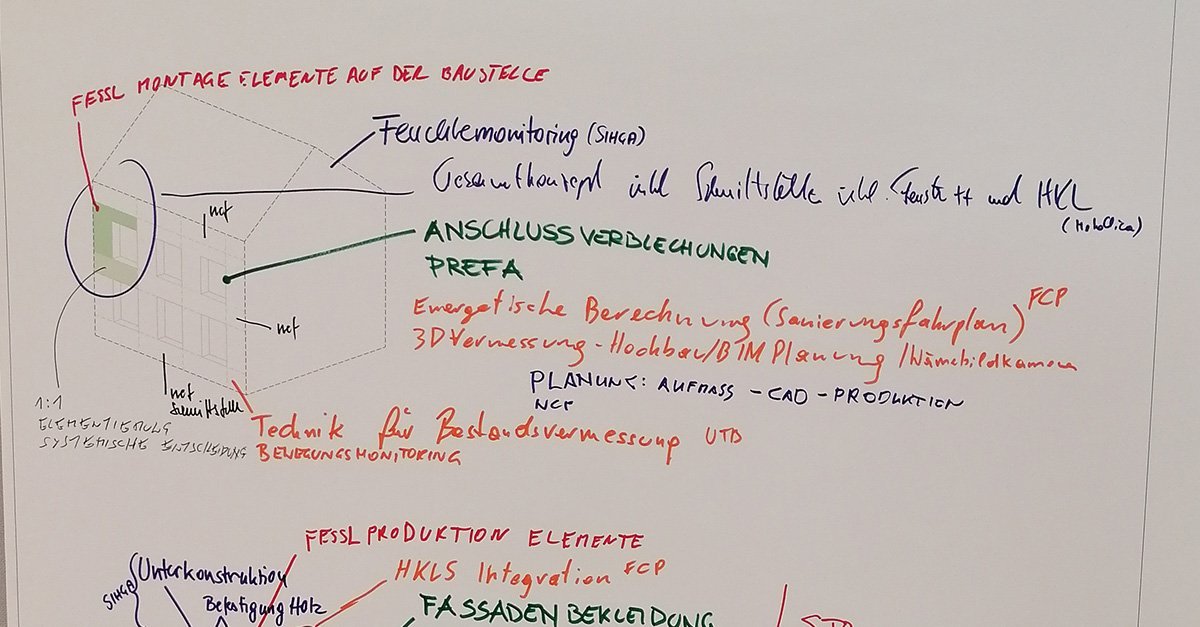 FESSL MONTAGE ELEMENTE AUF DER BAUSTELLE
Feuchtemonitoring (SIHGA)
Gesamtkonzept inkl Schnittstelle inkl. und HKL
ANSCHLUSSVERBLECHUNGEN
PREFA
Energetische Berechnung (Sanierungsfahrplan) FCP
3D Vermessung - Hochbau/BIM Planung / Wärmebildkamera
PLANUNG: AUFMASS - CAD - PRODUKTION
NCF
nct
nct
not
Schnittstelle
1:1
ELEMENTIERUNG
SYSTEMISCHE ENTSCHEIDUNG
Technik für Bestandsvermessung UTB
BEWEGUNGSMONITORING
FESSL PRODUKTION ELEMENTE
HKLS Integration FCP
SIHGA
Unterkonstruktion
Befestigung Holz
FASSADENBEKLEIDUNG